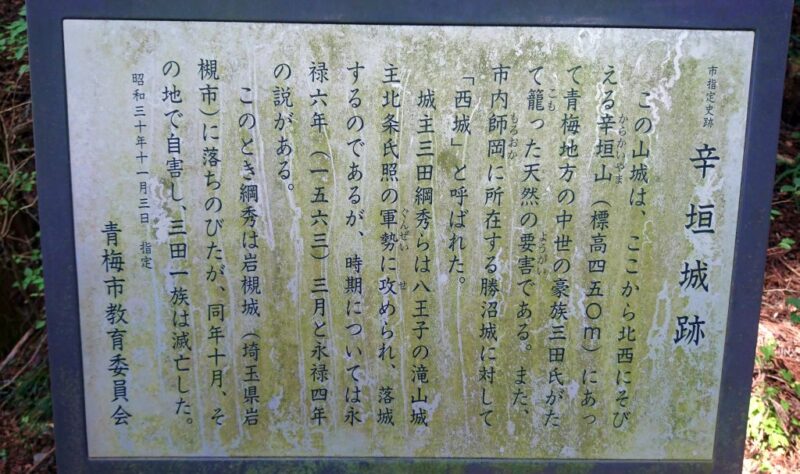 市指定史跡
辛垣城跡
この山城は、ここから北西にそび
える辛垣山（標高四五〇m）にあっ
からかいやま
て青梅地方の中世の豪族三田氏がた
て籠った天然の要害である。また、
こも
ようがい
市内師岡に所在する勝沼城に対して
もろおか
「西城」と呼ばれた。
城主三田綱秀らは八王子の滝山城
主北条氏照の軍勢に攻められ、落城
ぐんぜい
せ
するのであるが、時期については永
禄六年（一五六三）三月と永禄四年
の説がある。
このとき綱秀は岩槻城（埼玉県岩
槻市）に落ちのびたが、同年十月、そ
の地で自害し、三田一族は滅亡した。
昭和三十年十一月三日 指定
青梅市教育委員会